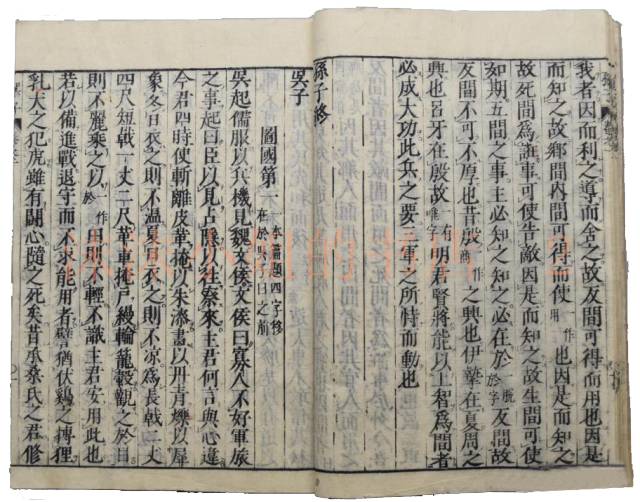 我者因而利之導而舍之故反間可得而用也因是
而知之故鄉間內間可得而使一作用也因是而知之
故死間爲誑事可使告敵因是而知之故生間可使
如期五間之事主必知之知之必在於一脫於字反間故
反間不可不厚也昔殷一作商之興也伊摯在夏周之
興也呂牙在殷故一有惟字明君賢將能以上智爲間者
必成大功此兵之要三軍之所恃而動也
孫子終
吳子
圖國第一本篇題四字移在於吳子曰之前
吳起儒服以兵機見魏文侯文侯曰寡人不好軍旅
之事起曰臣以見占隱以往察來主君何言與心違
今君四時使斬離皮革掩以朱漆畫以丹青爍以犀
象冬日衣之則不溫夏日衣之則不涼爲長戟二丈
四尺短戟一丈二尺革車掩戶縵輪籠轂觀之於目
則不麗乘之以一作田則不輕不識主君安用此也
若以備進戰退守而不求能用者譬猶伏鷄之搏狸
乳犬之犯虎雖有鬭心隨之死矣昔承桑氏之君修